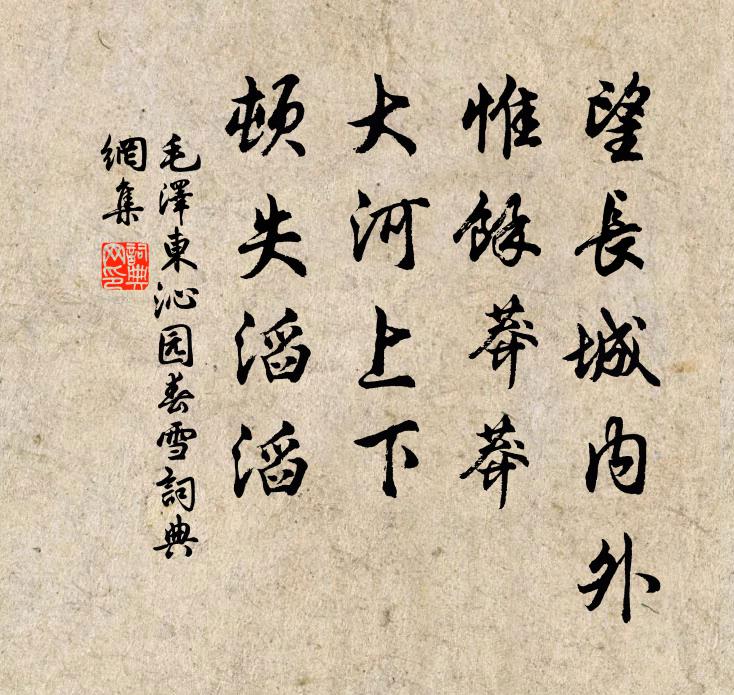 望長城内外
惟餘莽莽
大河上下
頓失滔滔
毛澤東沁园春雪詞典
網集
詞典
网印